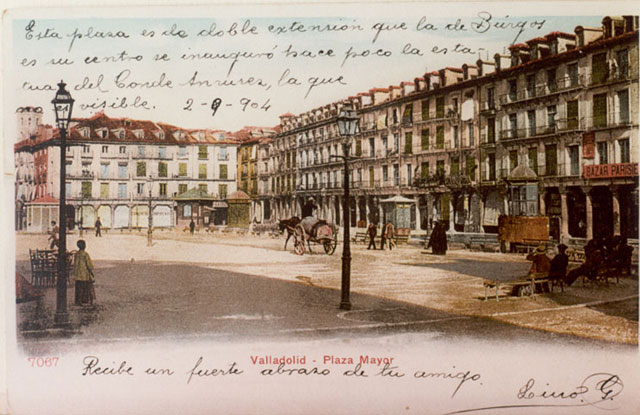 Esta plaza es de doble extensión que la de Burgos
es su centro se inauguró hace poco la esta
tua del Conde Ansurez, la que
es visible. 2-9-904
BAZAR PARISIE
7067
Valladolid - Plaza Mayor
Recibe un fuerte abrazo de tu amigo.
Lino G.